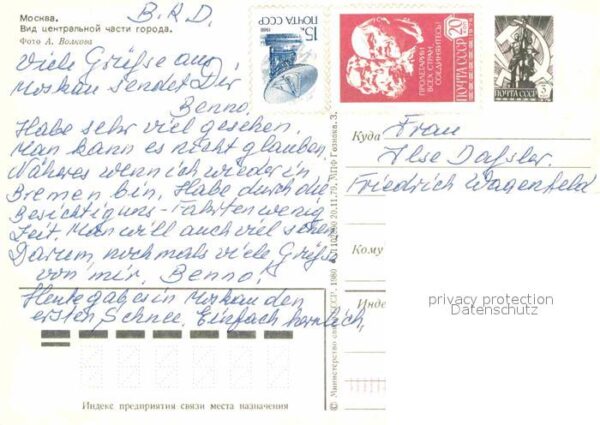 Москва.
Вид центральной части города.
Фото А. Волкова
B.R.D.
Viele Grüße aus
Moskau sendet Dir
Benno.
Habe sehr viel gesehen.
Man kann es nicht glauben.
Näheres wenn ich wieder in
Bremen bin. Habe durch die
Besichtigungs-Fahrten wenig
Zeit. Man will auch viel sehen.
Darum, noch mals viele Grüße
von mir. Benno!
Heute gab es in Moskau den
ersten Schnee. Einfach herrlich.
15к
ПОЧТА СССР
1988
ПРОЛЕТАРИИ
ВСЕХ СТРАН,
СОЕДИНЯЙТЕСЬ!
20
ПОЧТА СССР
ПОЧТА СССР
Куда
Frau
Ilse Daßler.
Friedrich Wagenfeld
Кому
Инде
privacy protection
Datenschutz
© Министерство СССР, 1980
20.11.79.
Гознака. З.
Индекс предприятия связи места назначения